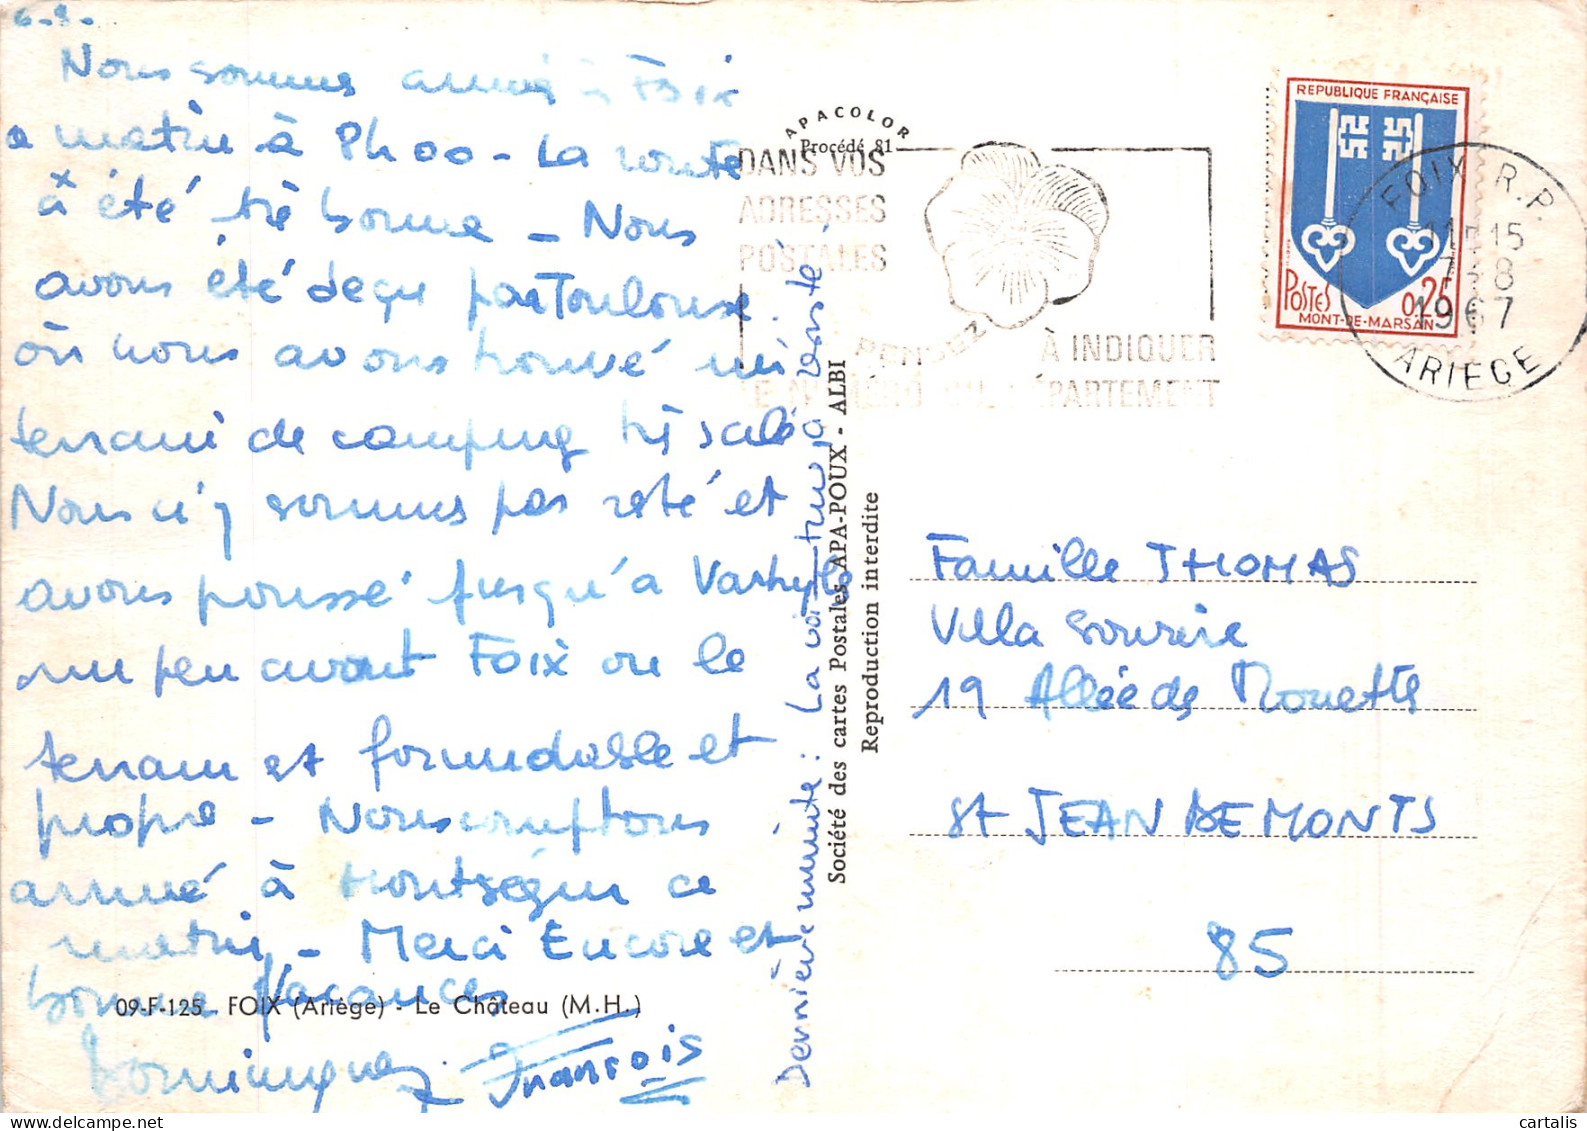 6-8-
Nous sommes arrivé à Foix
ce matin à 9h00 - La route
a été très bonne - Nous
avons été déçu par Toulouse
où nous avons trouvé un
terrain de camping très sale
Nous n'y sommes pas resté et
avons poussé jusqu'à Varhyls
un peu avant Foix ou le
terrain est formidable et
propre - Nous comptons
arrivé à Montségur ce
matin - Merci Encore et
bonne Vacances
Dominique François
09-F-125 - FOIX (Ariège) - Le Château (M.H.)
Dernière minute : La voiture a resisté
APACOLOR
Procédé 81
Société des cartes Postales APA-POUX - ALBI
Reproduction interdite
DANS VOS
ADRESSES
POSTALES
PENSEZ
À INDIQUER
LE NUMÉRO DU DÉPARTEMENT
REPUBLIQUE FRANÇAISE
POSTES
0,25
MONT-DE-MARSAN
FOIX R.P.
11H15
7-8
1967
ARIEGE
Famille THOMAS
Villa Sourire
19 Allée des Mouettes
St JEAN DE MONTS
85
cartalis